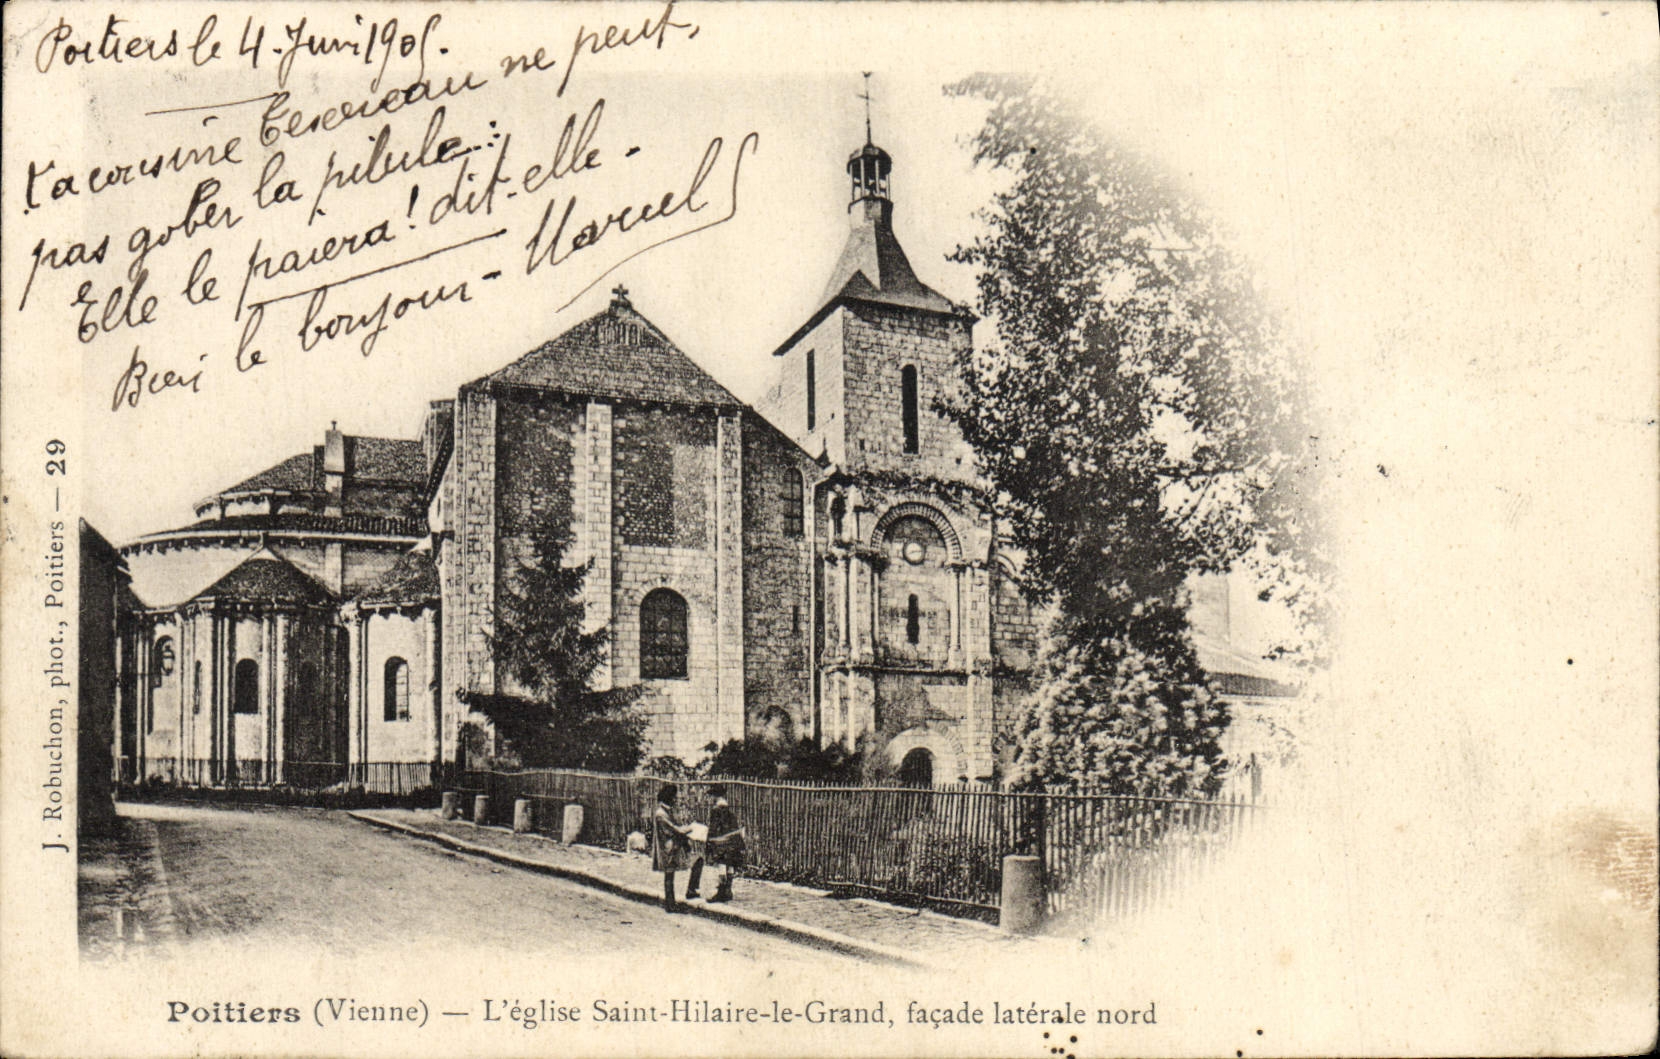 Poitiers le 4 Juin 1905.
ta cousine ne peut,
pas gober la pilule..:
Elle le paiera! dit-elle.
Bien le bonjour - Marcel
J. Robuchon, phot., Poitiers — 29
Poitiers (Vienne) — L'église Saint-Hilaire-le-Grand, façade latérale nord